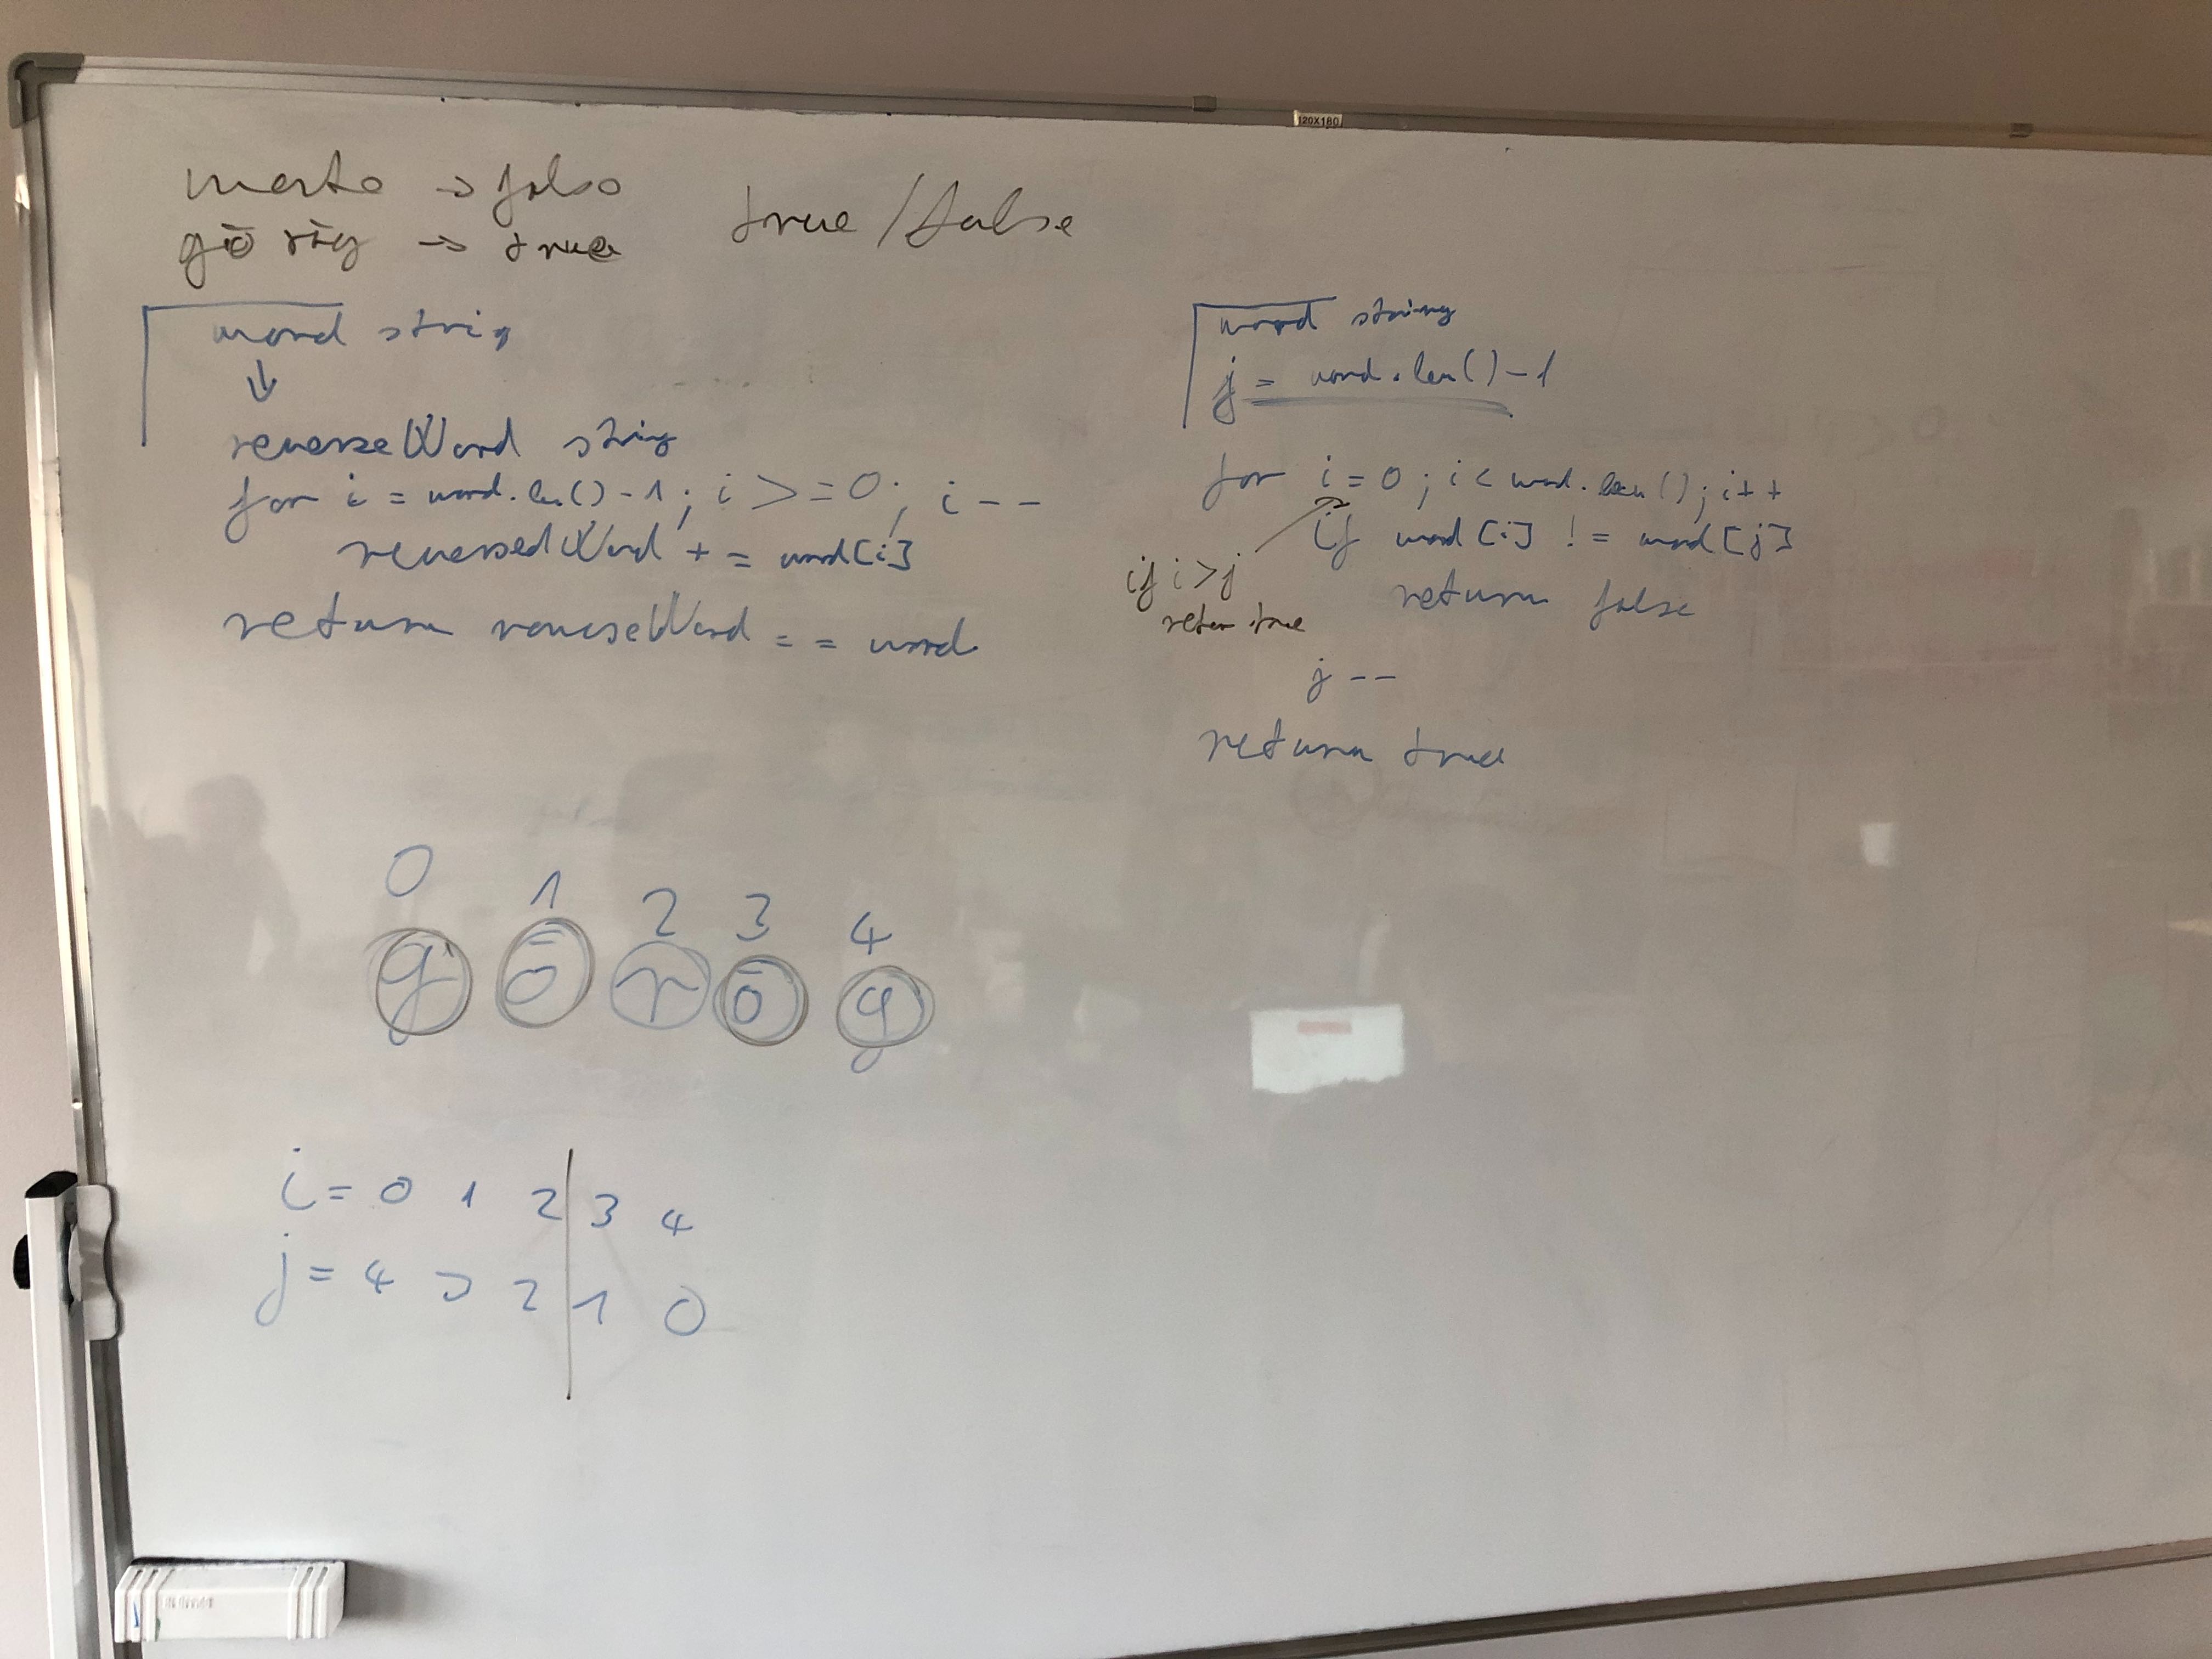 120X180
→ false
→ true
true / false
word string
↓
reverseWord string
for i = word.len() - 1 ; i >= 0 ; i --
reversedWord + = word[i]
return reverseWord = = word
word string
j = word.len() - 1
for i = 0 ; i < word.len() ; i++
if word [i] != word [j]
return false
if i > j
return true
j --
return true
0 1 2 3 4
g ő r ő g
i = 0 1 2 3 4
j = 4 3 2 1 0